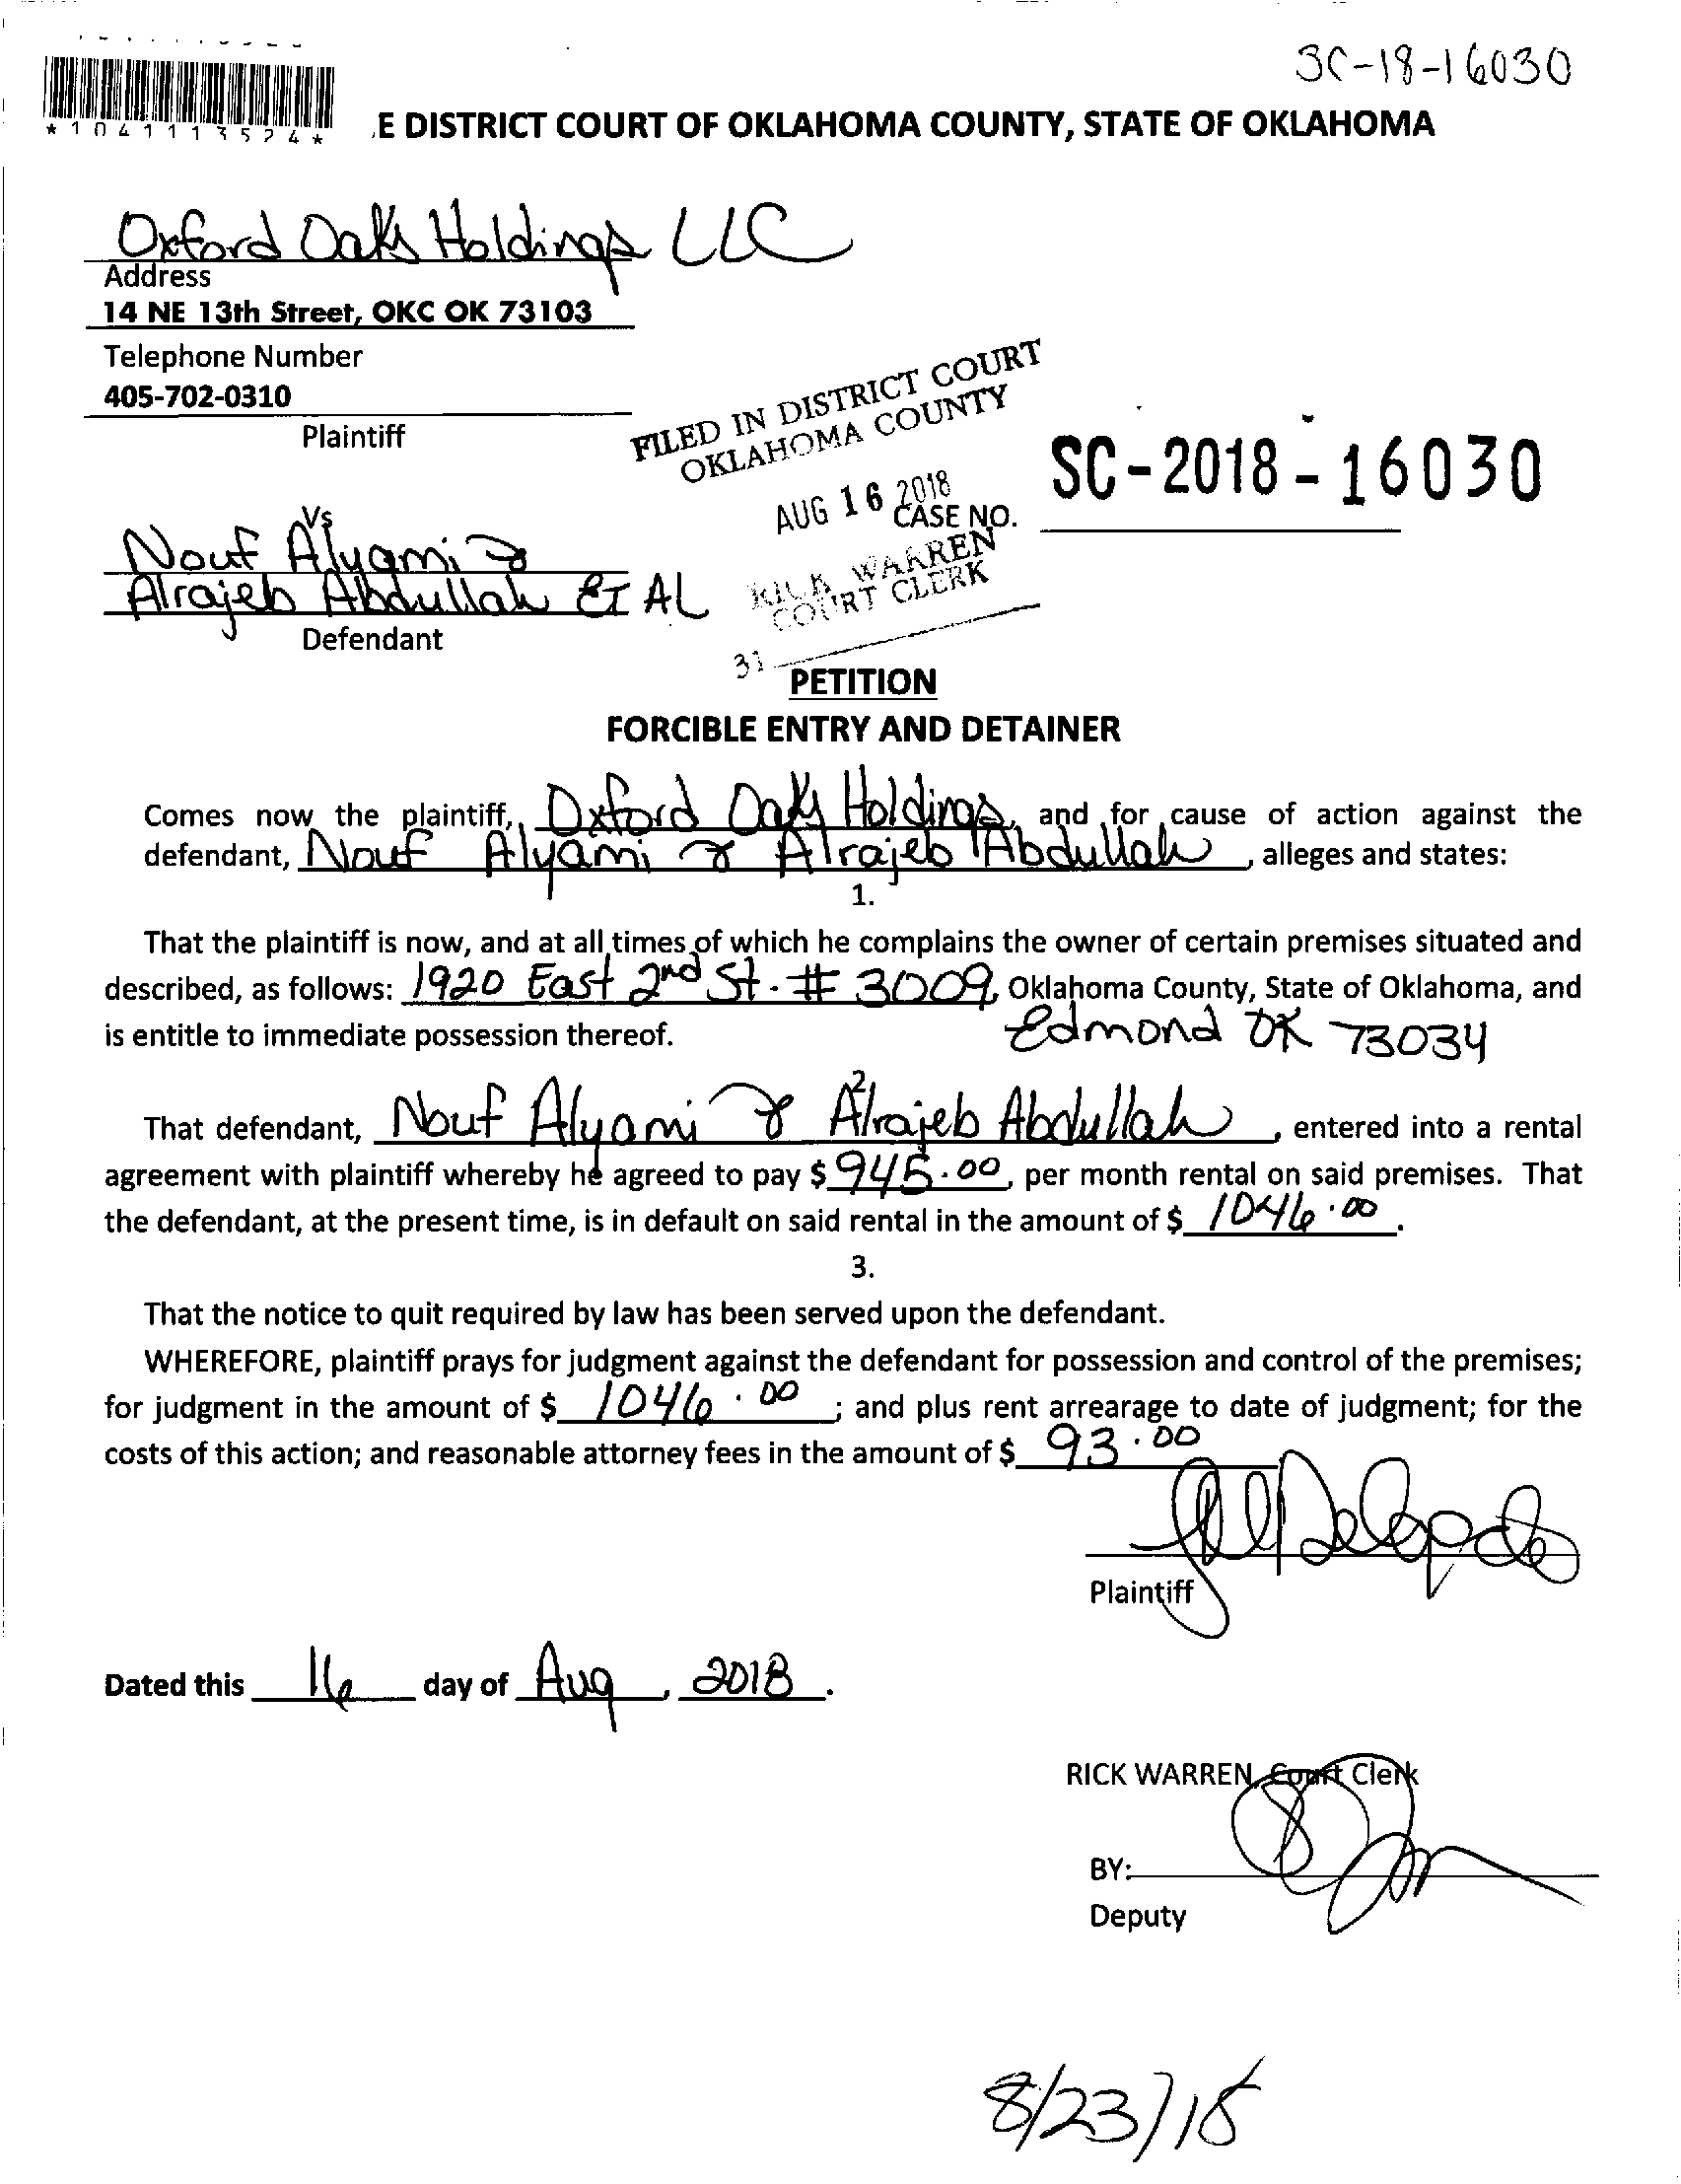 SC-18-16030
*1041113524*
E DISTRICT COURT OF OKLAHOMA COUNTY, STATE OF OKLAHOMA
Oxford Oaks Holdings LLC
Address
14 NE 13th Street, OKC OK 73103
Telephone Number
405-702-0310
Plaintiff
FILED IN DISTRICT COURT
OKLAHOMA COUNTY
AUG 16 2018
SC-2018-16030
CASE NO.
RICK WARREN
COURT CLERK
31
Vs
Nouf Alyami &
Alrajeb Abdullah ET AL
Defendant
PETITION
FORCIBLE ENTRY AND DETAINER
Comes now the plaintiff, Oxford Oaks Holdings, and for cause of action against the
defendant, Nouf Alyami & Alrajeb Abdullah, alleges and states:
1.
That the plaintiff is now, and at all times of which he complains the owner of certain premises situated and
described, as follows: 1920 East 2nd St. # 3009, Oklahoma County, State of Oklahoma, and
is entitle to immediate possession thereof. Edmond OK 73034
2.
That defendant, Nouf Alyami & Alrajeb Abdullah, entered into a rental
agreement with plaintiff whereby he agreed to pay $ 945.00, per month rental on said premises. That
the defendant, at the present time, is in default on said rental in the amount of $ 1046.00.
3.
That the notice to quit required by law has been served upon the defendant.
WHEREFORE, plaintiff prays for judgment against the defendant for possession and control of the premises;
for judgment in the amount of $ 1046.00; and plus rent arrearage to date of judgment; for the
costs of this action; and reasonable attorney fees in the amount of $ 93.00
Plaintiff
Dated this 16 day of Aug, 2018.
RICK WARREN, Court Clerk
BY:
Deputy
8/23/18